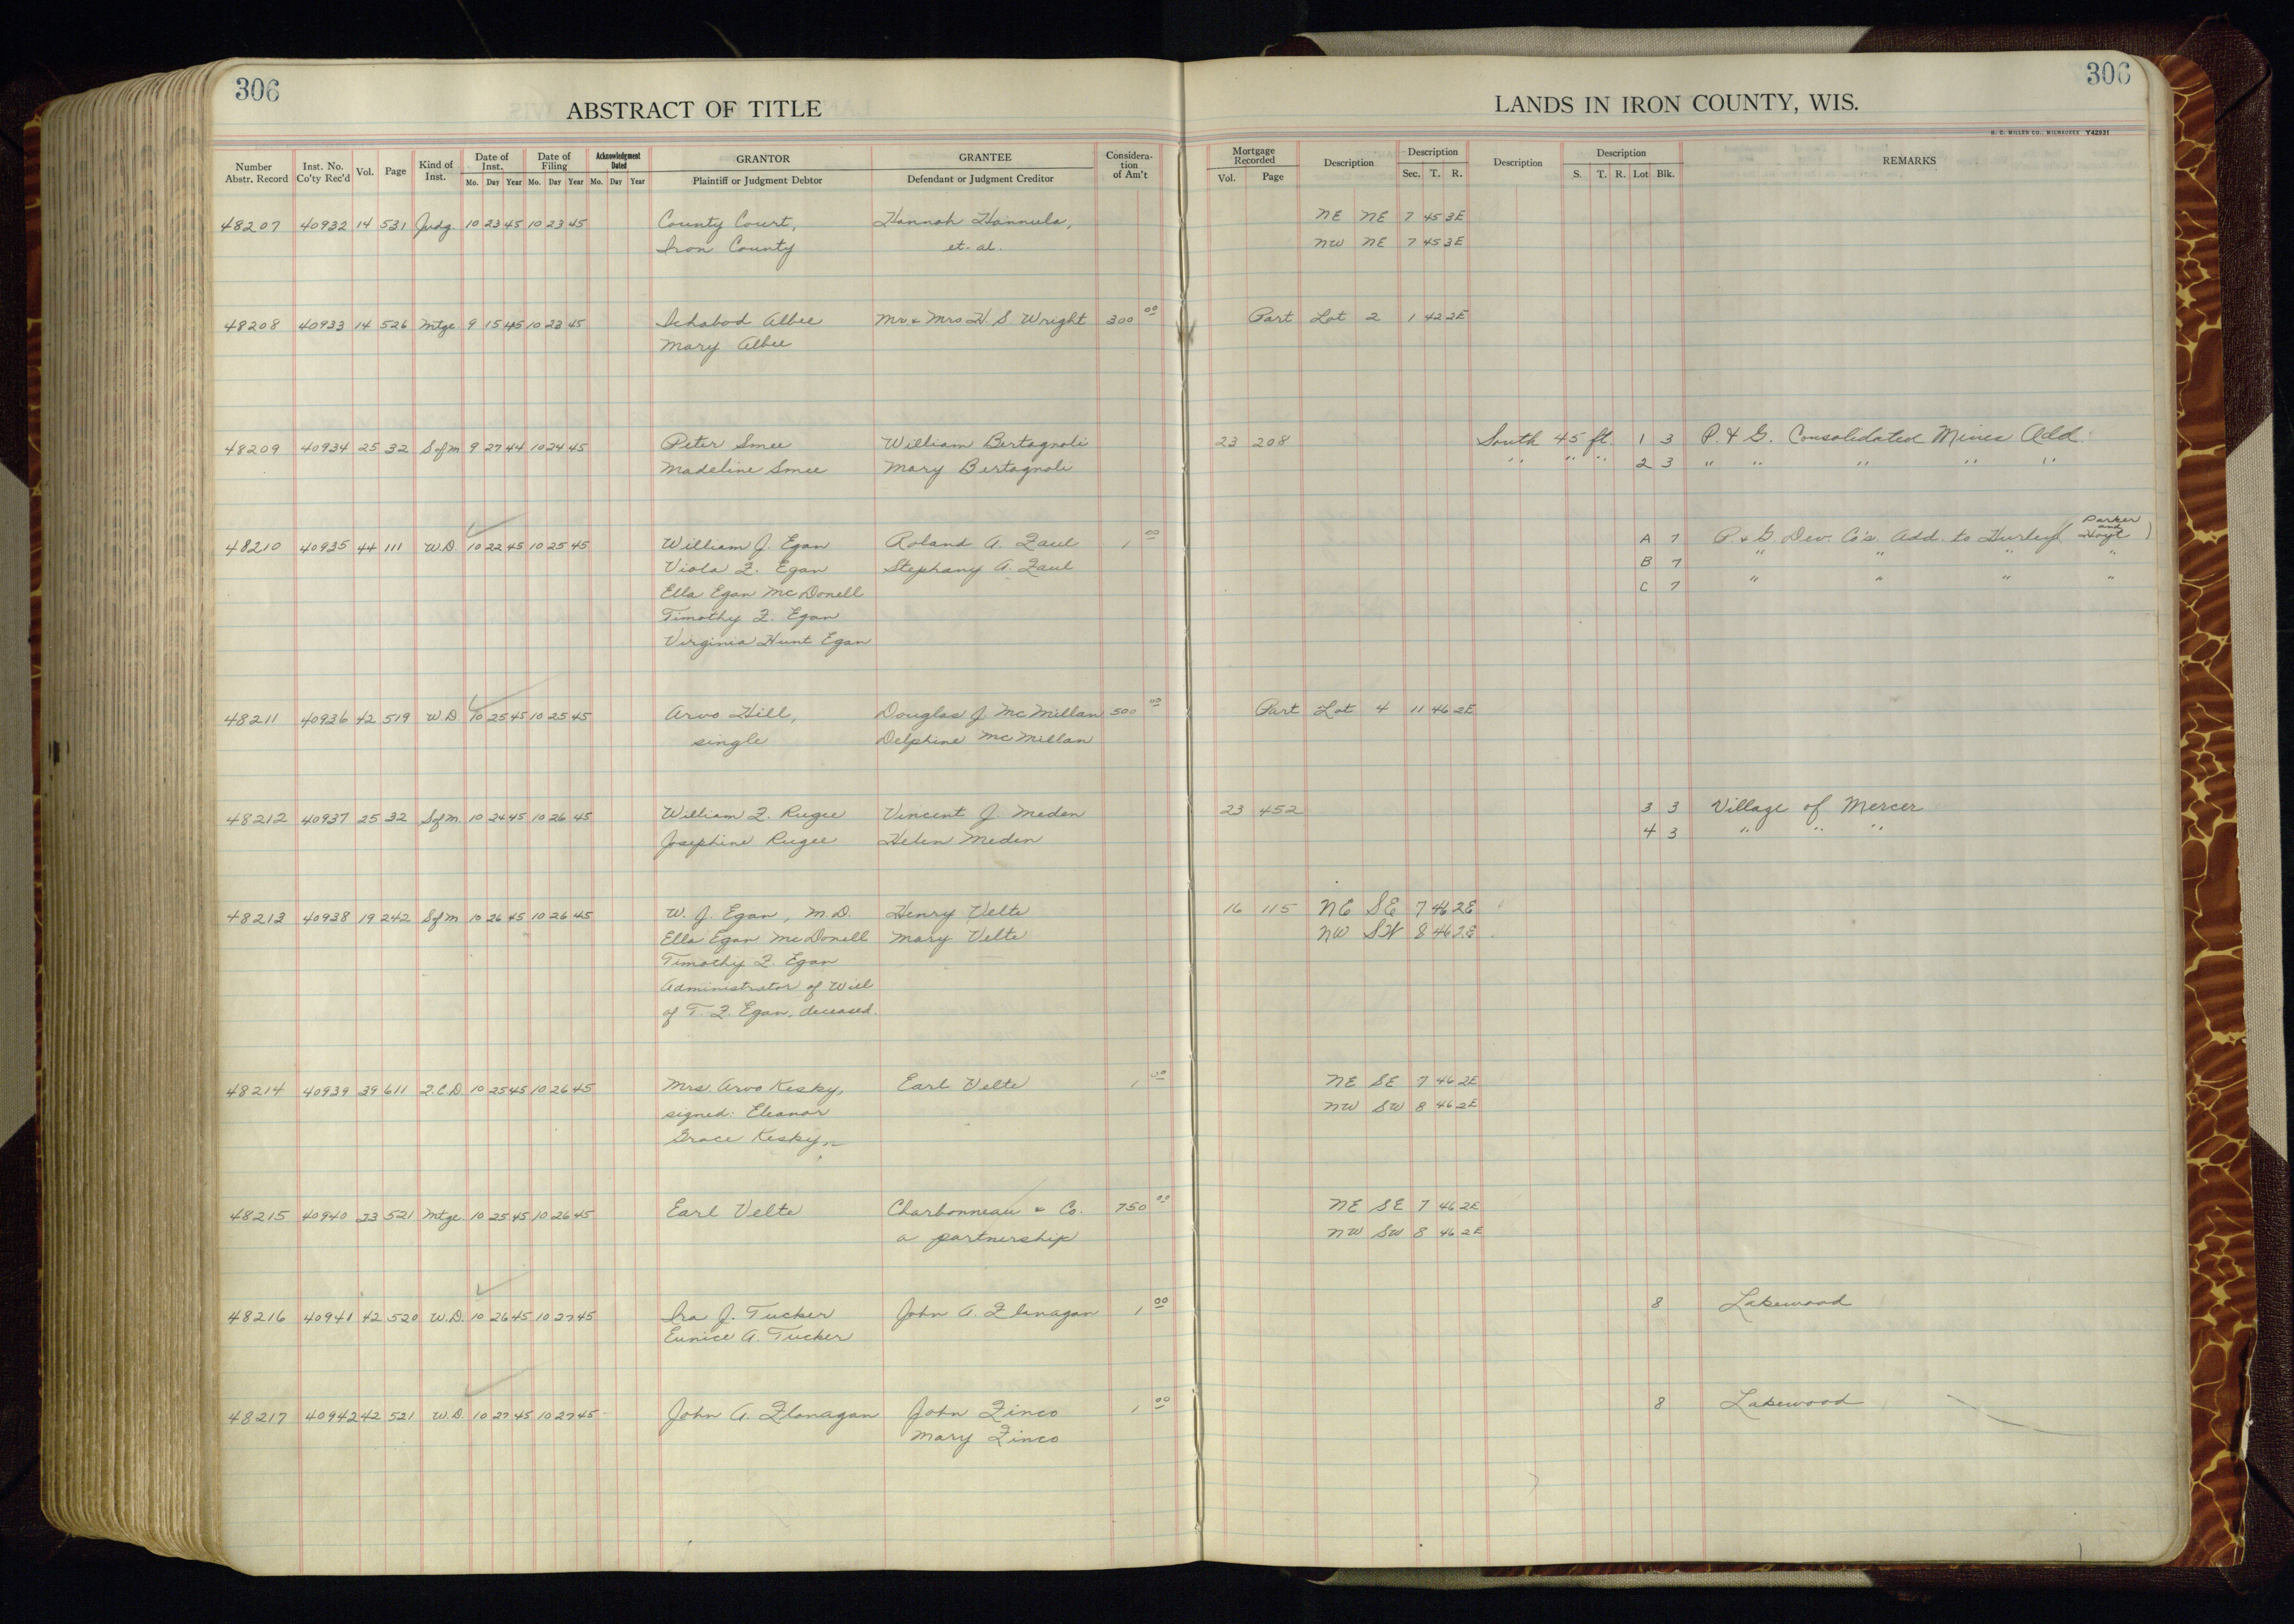 306
306
ABSTRACT OF TITLE
LANDS IN IRON COUNTY, WIS.
H. C. MILLER CO., MILWAUKEE Y42931
Number Abstr. Record Inst. No. Co'ty Rec'd Vol. Page Kind of Inst. Date of Inst. Mo. Day Year Date of Filing Mo. Day Year Acknowledgment Dated Mo. Day Year GRANTOR Plaintiff or Judgment Debtor GRANTEE Defendant or Judgment Creditor Consideration of Am't Mortgage Recorded Vol. Page Description Description Sec. T. R. Description Description S. T. R. Lot Blk. REMARKS
48207 40932 14 531 Judg. 10 23 45 10 23 45 County Court, Hannah Hannula, NE NE 7 45 3E
Iron County et. al. NW NE 7 45 3E
48208 40933 14 526 Mtge 9 15 45 10 23 45 Ichabod Albee Mr & Mrs H. S. Wright 300 00 Part Lot 2 1 42 2E
Mary Albee
48209 40934 25 32 Sofm 9 27 44 10 24 45 Peter Smee William Bertagnoli 23 208 South 45 ft. 1 3 P. & G. Consolidated Mines Add.
Madeline Smee Mary Bertagnoli " " " 2 3 " " " " "
48210 40935 44 111 W.D. 10 22 45 10 25 45 William J. Egan Roland A. Zaul 1 00 A 7 P. & G. Dev. Co's Add. to Hurley (Parker and Hoyt)
Viola F. Egan Stephany A. Zaul B 7 " " " "
Ella Egan McDonell C 7 " " " "
Timothy F. Egan
Virginia Hunt Egan
48211 40936 42 519 W.D. 10 25 45 10 25 45 Arvo Hill, Douglas J. McMillan 500 00 Part Lot 4 11 46 2E
single Delphine McMillan
48212 40937 25 32 Sofm. 10 24 45 10 26 45 William F. Rugee Vincent J. Meden 23 452 3 3 Village of Mercer
Josephine Rugee Helen Meden 4 3 " " "
48213 40938 19 242 Sofm 10 26 45 10 26 45 W. J. Egan, M.D. Henry Velte 16 115 NE SE 7 46 2E
Ella Egan McDonell Mary Velte NW SW 8 46 2E
Timothy F. Egan
Administrator of Will
of T. F. Egan, deceased.
48214 40939 39 611 Q.C.D. 10 25 45 10 26 45 Mrs. Arvo Kesky, Earl Velte 1 00 NE SE 7 46 2E
signed: Eleanor NW SW 8 46 2E
Grace Kesky
48215 40940 23 521 Mtge 10 25 45 10 26 45 Earl Velte Charbonneau & Co. 750 00 NE SE 7 46 2E
a partnership NW SW 8 46 2E
48216 40941 42 520 W.D. 10 26 45 10 27 45 Ira J. Tucker John A. Flanagan 1 00 8 Lakewood
Eunice A. Tucker
48217 40942 42 521 W.D. 10 27 45 10 27 45 John A. Flanagan John Zinco 1 00 8 Lakewood
Mary Zinco